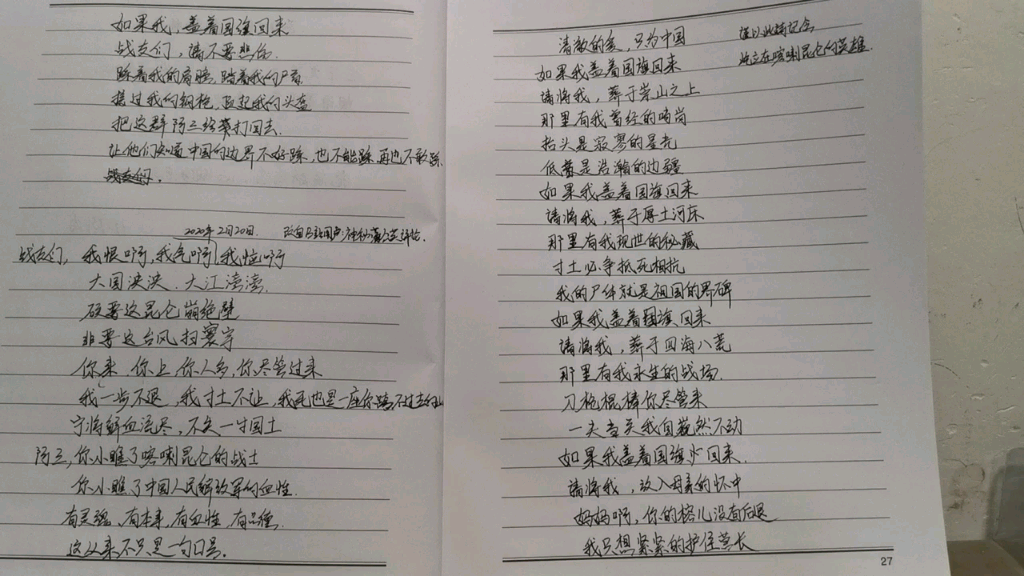 如果我,盖着国旗回来
战友们,请不要悲伤
踩着我的肩膀,踏着我的尸首
提过我的钢枪
把这群阿三给我打回去.
让他们知道中国的边界不好踩,也不能踩,再也不敢踩.
2020年2月20日.
战友们,我恨啊,我气啊,我怕啊
大国泱泱,大江滂滂.
硬要这昆仑崩绝壁
非要这台风扫寰宇
你来 你上,你人多,你尽管过来
我一步不退,我寸土不让,我死也是一座你跨不过去的山
宁将鲜血流尽,不失一寸国土
阿三,你小瞧了喀喇昆仑的战士
你小瞧了中国人民解放军的血性.
有灵魂,有本事,有血性,有品德.
这从来不只是一句口号.
清澈的爱,只为中国
谨以此篇纪念
屹立在喀喇昆仑的英雄.
如果我盖着国旗回来
请将我,葬于崇山之上
那里有我曾经的哨岗
抬头是寂寥的星光
低着是浩瀚的边疆
如果我盖着国旗回来
请将我,葬于厚土河床
那里有我现世的秘藏
寸土必争抵死相抗
我的尸体就是祖国的界碑
如果我盖着国旗回来
请将我,葬于四海八荒
那里有我永生的战场.
刀枪棍棒你尽管来
一夫当关我自巍然不动
如果我盖着国旗回来.
请将我,放入母亲的怀中
妈妈啊,你的榕儿没有后退
我只想紧紧的护住营长
27